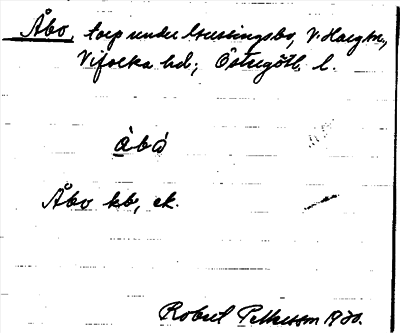 Åbo, torp under Grebingsbo, V. Hargs sn,
Vifolka hd; Östergötl. l.
åbô
Åbo kb, ek.
Robert Pettersson 1930.